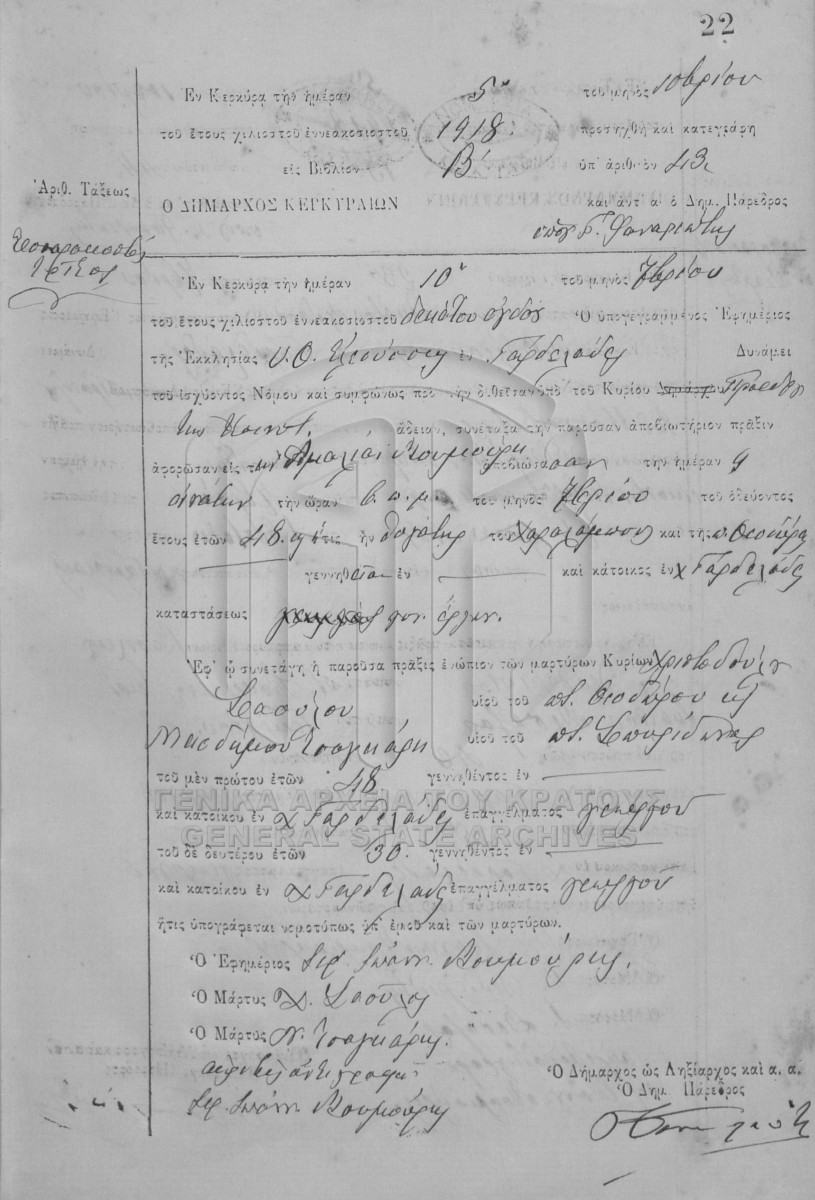 22
Ἐν Κερκύρᾳ τὴν ἡμέραν 5η τοῦ μηνὸς 10βρίου
τοῦ ἔτους χιλιοστοῦ ἐννεακοσιοστοῦ 1918 προσηχθη καὶ κατεγράφη
εἰς Βιβλίον Β' ὑπ' ἀριθμὸν 43
Ἀριθ. Τάξεως
Ο ΔΗΜΑΡΧΟΣ ΚΕΡΚΥΡΑΙΩΝ καὶ ἀντ' α' ὁ Δημ. Πάρεδρος
Τεσσαρακοστὴ
τρίτος
Ἐν Κερκύρᾳ τὴν ἡμέραν 10η τοῦ μηνὸς 7βρίου
τοῦ ἔτους χιλιοστοῦ ἐννεακοσιοστοῦ δεκάτου ὀγδόου Ὁ ὑπογεγραμμένος Ἐφημέριος
τῆς Ἐκκλησίας Υ. Θ. Ἐλεούσσης ἐν Γαρδελάδες Δυνάμει
τοῦ ἰσχύοντος Νόμου καὶ συμφώνως πρὸς τὴν δοθεῖσαν ὑπὸ τοῦ Κυρίου Δημάρχου Προέδρου
της Κοινότ. ἄδειαν, συνέταξα τὴν παροῦσαν ἀποβιωτήριον πρᾶξιν
ἀφορῶσαν εἰς τὴν Ἀμαλίαν Βουμπούρη ἀποβιώσασαν τὴν ἡμέραν 9
ἐνάτην τὴν ὥραν 6. π. μ. τοῦ μηνὸς 7βρίου τοῦ ὁδεύοντος
ἔτους ἐτῶν 48 ἥτις ἦν θυγάτηρ τοῦ Χαραλάμπους καὶ τῆς Θεοδώρας
γεννηθεῖσα ἐν καὶ κάτοικος ἐν χ Γαρδελάδες
καταστάσεως γυν. ἔργων.
Ἐφ' ᾧ συνετάγη ἡ παροῦσα πρᾶξις ἐνώπιον τῶν μαρτύρων Κυρίων Χριστοδούλου
Σαούλου υἱοῦ τοῦ ποτ. Θεοδώρου κ
Νικοδήμου Τσαγκάρη υἱοῦ τοῦ ποτ. Σπυρίδωνος
τοῦ μὲν πρώτου ἐτῶν 48 γεννηθέντος ἐν
καὶ κατοίκου ἐν χ Γαρδελάδες ἐπαγγέλματος γεωργοῦ
ΓΕΝΙΚΑ ΑΡΧΕΙΑ ΤΟΥ ΚΡΑΤΟΥΣ
GENERAL STATE ARCHIVES
τοῦ δὲ δευτέρου ἐτῶν 30. γεννηθέντος ἐν
καὶ κατοίκου ἐν χ Γαρδελάδες ἐπαγγέλματος γεωργοῦ
ἥτις ὑπογράφεται νομοτύπως ὑπ' ἐμοῦ καὶ τῶν μαρτύρων.
Ὁ Ἐφημέριος Ιερ. Ιωάνν. Βουμπούρης.
Ὁ Μάρτυς Χ. Σαούλος
Ὁ Μάρτυς Ν. Τσαγκάρης.
ἀκριβὲς ἀντίγραφον
Ιερ. Ιωάνν. Βουμπούρης
Ὁ Δήμαρχος ὡς Ληξίαρχος καὶ α. α.
Ὁ Δημ. Πάρεδρος